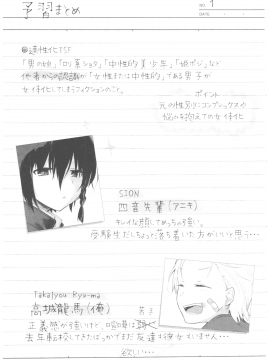 予習まとめ
NO. 1
DATE
●適性化TSF
「男の娘」「ロリ薬ショタ」「中性的美少年」「姫ポジ」など
他者からの認識が「女性または中性的」である男子が
女体化してしまうフィクションのこと。
ポイント
元の性別にコンプレックスや
悩みを抱えての女体化
SION
四音先輩(アニキ)
キレイな顔してめっちゃ強い。
受験生だしちょっと落ち着いた方がいいと思う…
Takaiyou Ryu-ma
高城龍馬(俺)
正義感が強いけど、喧嘩は弱く
去年転校してきたばっかでまだ友達も彼女もいません…
欲しい…